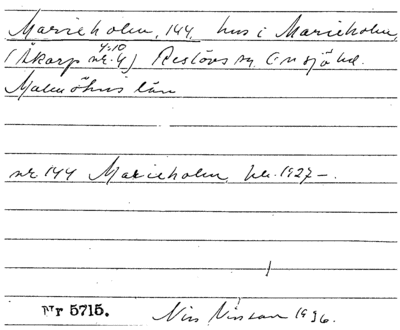 Marieholm, 144, hus i Marieholm,
4:10
(Åkarp nr. 4) Reslövs sn, Onsjö hd.
Malmöhus län
nr 144 Marieholm, 1927 –.
Nr 5715. Nils Nilsson 1936.